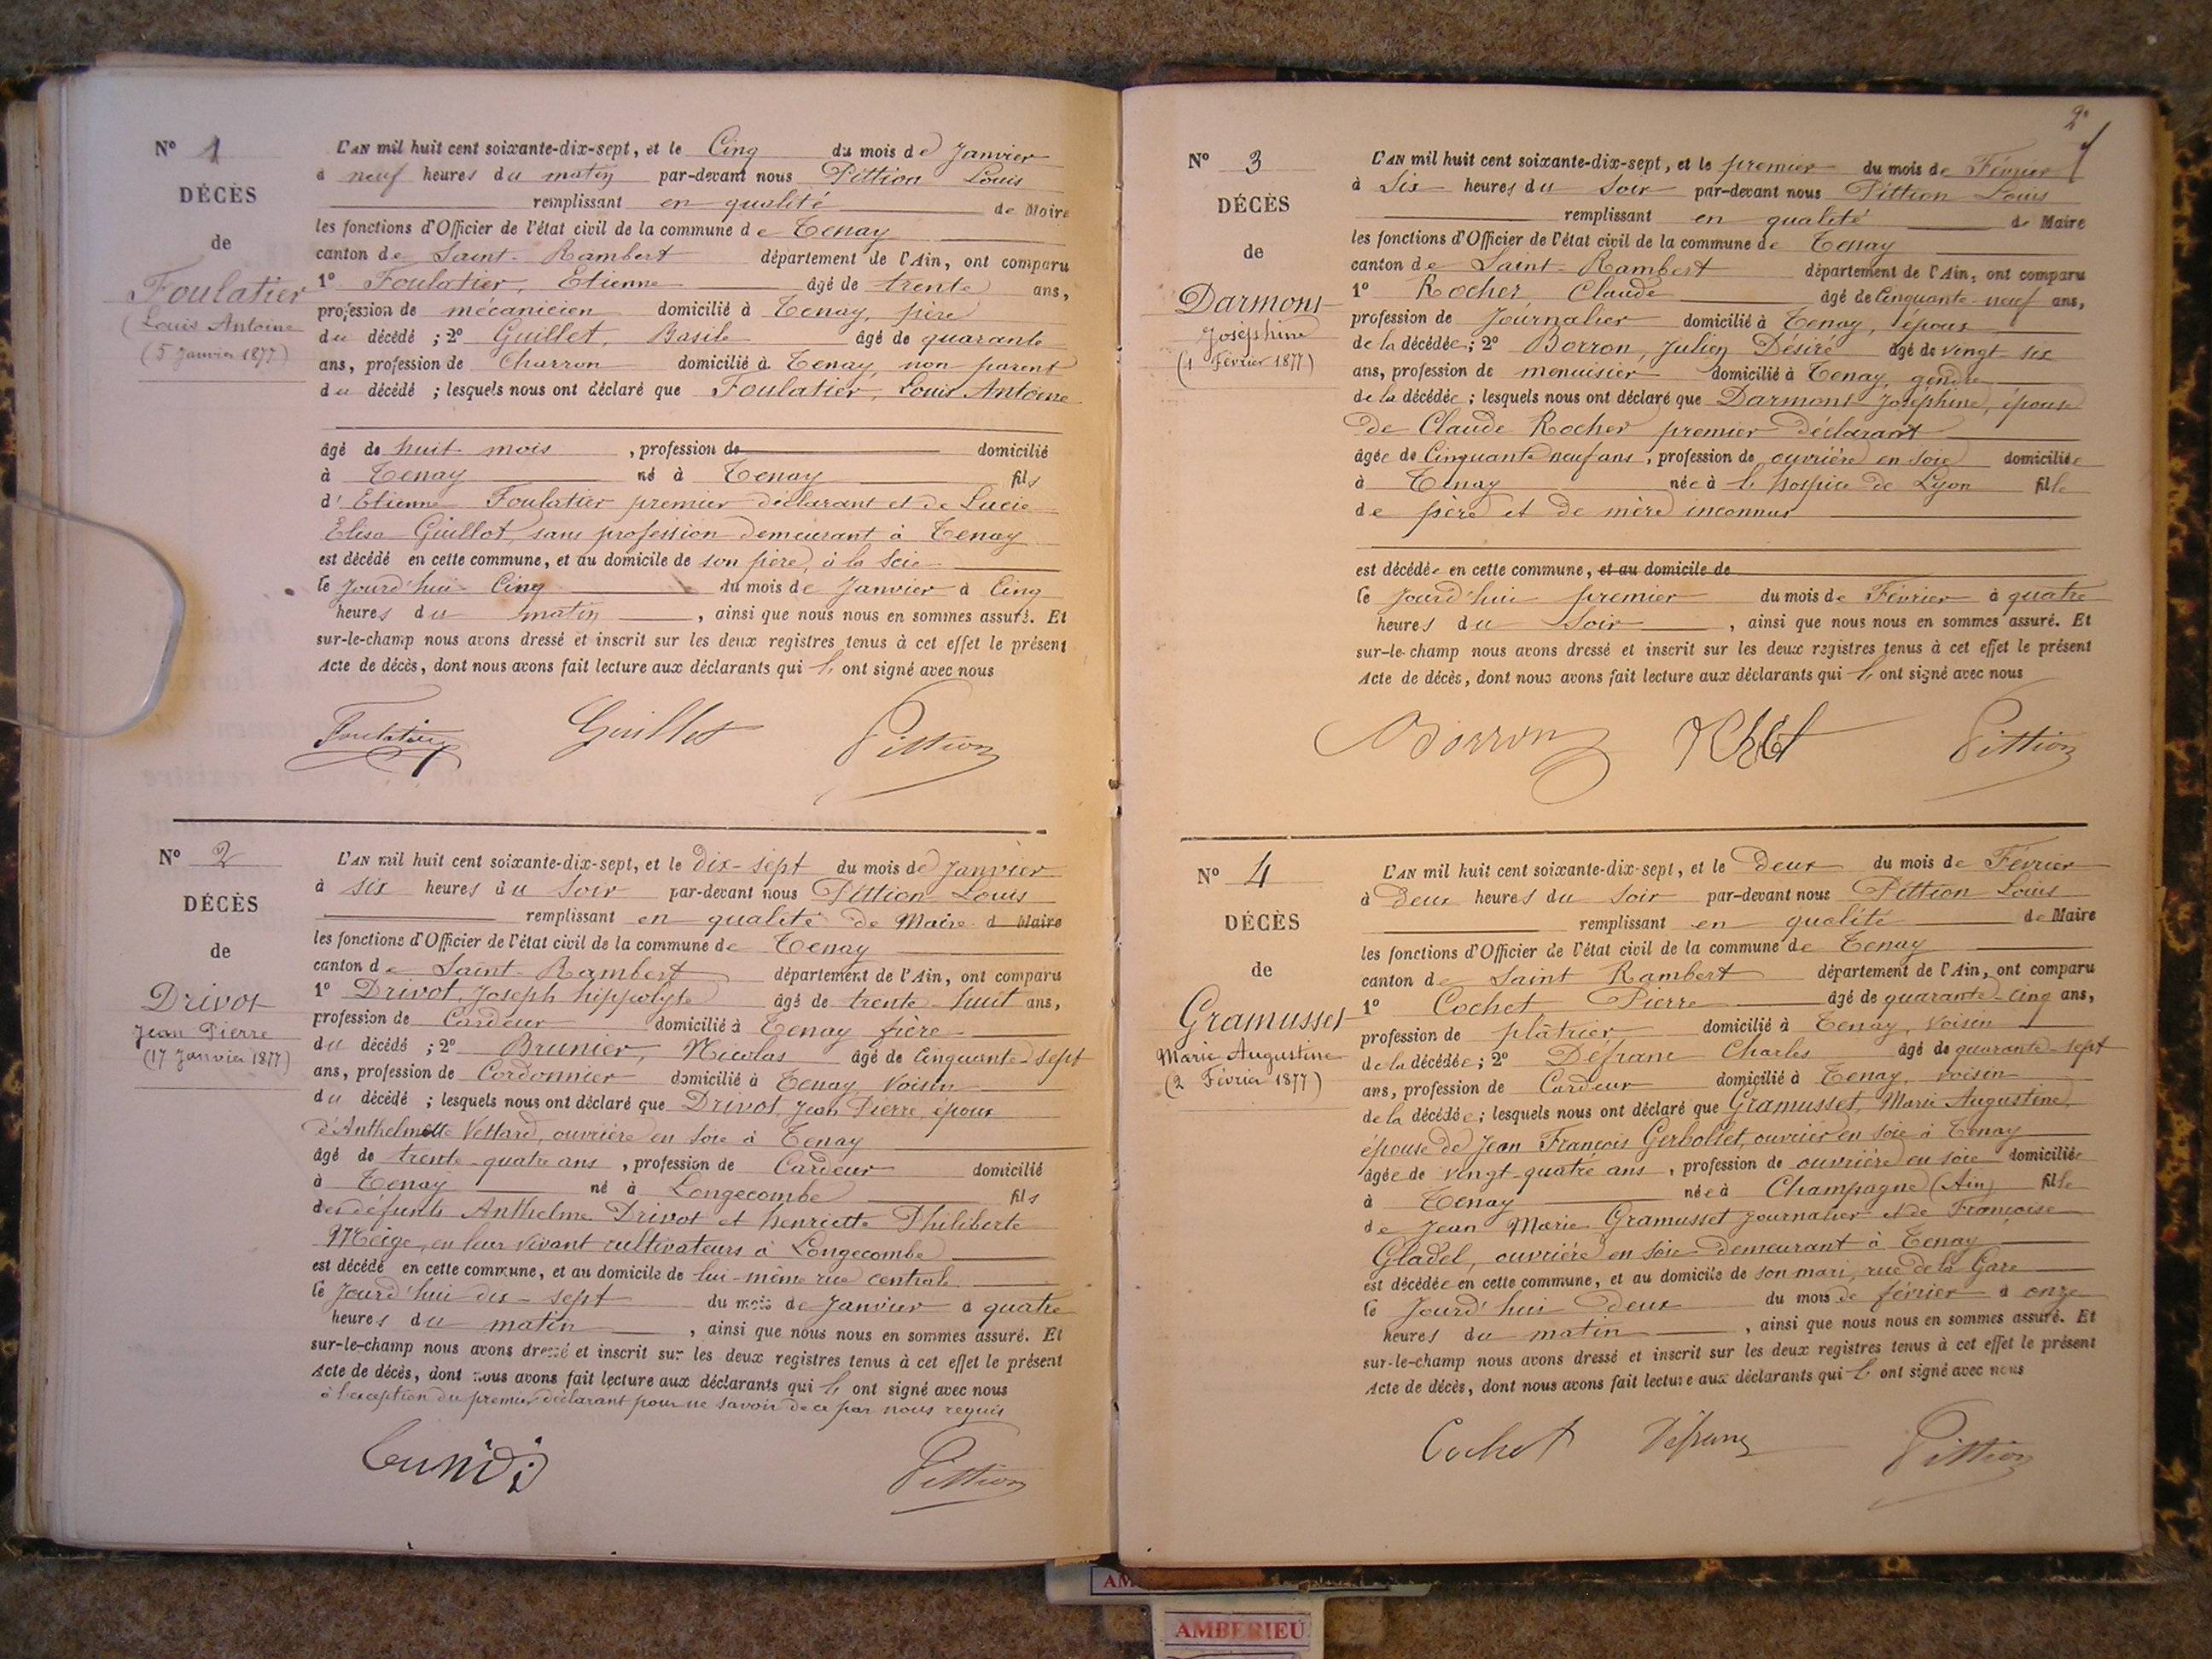 Nº 1
DÉCÈS
de
Foulatier
(Louis Antoine
(5 Janvier 1877)
L'AN mil huit cent soixante-dix-sept, et le Cinq du mois de Janvier
à neuf heures du matin par-devant nous Pittion Louis
remplissant en qualité de Maire
les fonctions d'Officier de l'état civil de la commune de Tenay
canton de Saint-Rambert département de l'Ain, ont comparu
1º Foulatier, Etienne âgé de trente ans,
profession de mécanicien domicilié à Tenay, père
du décédé ; 2º Guillet, Basile âgé de quarante
ans, profession de Charron domicilié à Tenay non parent
du décédé ; lesquels nous ont déclaré que Foulatier, Louis Antoine
âgé de huit mois , profession de domicilié
à Tenay né à Tenay fils
d'Etienne Foulatier premier déclarant et de Lucie
Elisa Guillot, sans profession demeurant à Tenay
est décédé en cette commune, et au domicile de son père, à la Scie
le jourd'hui Cinq du mois de Janvier à Cinq
heures du matin , ainsi que nous nous en sommes assuré. Et
sur-le-champ nous avons dressé et inscrit sur les deux registres tenus à cet effet le présent
Acte de décès, dont nous avons fait lecture aux déclarants qui l' ont signé avec nous
Foulatier Guillet Pittion
Nº 2
DÉCÈS
de
Drivot
Jean Pierre
(17 Janvier 1877)
L'AN mil huit cent soixante-dix-sept, et le dix-sept du mois de Janvier
à six heures du soir par-devant nous Pittion Louis
remplissant en qualité de Maire d Maire
les fonctions d'Officier de l'état civil de la commune de Tenay
canton de Saint-Rambert département de l'Ain, ont comparu
1º Drivot, Joseph hippolyte âgé de trente-huit ans,
profession de Cardeur domicilié à Tenay frère
du décédé ; 2º Brunier, Nicolas âgé de Cinquante-sept
ans, profession de Cordonnier domicilié à Tenay Voisin
du décédé ; lesquels nous ont déclaré que Drivot, Jean Pierre, époux
d'Anthelmette Vettard, ouvrière en soie à Tenay
âgé de trente-quatre ans , profession de Cardeur domicilié
à Tenay né à Longecombe fils
des défunts Anthelme Drivot et henriette Philiberte
Meige, en leur vivant cultivateurs à Longecombe
est décédé en cette commune, et au domicile de lui-même rue centrale
le jourd'hui dix-sept du mois de Janvier à quatre
heures du matin , ainsi que nous nous en sommes assuré. Et
sur-le-champ nous avons dressé et inscrit sur les deux registres tenus à cet effet le présent
Acte de décès, dont nous avons fait lecture aux déclarants qui l' ont signé avec nous
à l'exception du premier déclarant pour ne savoir de ce par nous requis
Pittion
2
Nº 3
DÉCÈS
de
Darmont
Joséphine
(1 Février 1877)
L'AN mil huit cent soixante-dix-sept, et le premier du mois de Février
à Six heures du soir par-devant nous Pittion Louis
remplissant en qualité de Maire
les fonctions d'Officier de l'état civil de la commune de Tenay
canton de Saint-Rambert département de l'Ain, ont comparu
1º Rocher, Claude âgé de Cinquante-neuf ans,
profession de Journalier domicilié à Tenay, époux
de la décédée ; 2º Borron, Julien Désiré âgé de vingt-six
ans, profession de menuisier domicilié à Tenay, gendre
de la décédée ; lesquels nous ont déclaré que Darmont Joséphine, épouse
de Claude Rocher premier déclarant
âgée de Cinquante neuf ans , profession de ouvrière en soie domiciliée
à Tenay née à l'hospice de Lyon fille
de père et de mère inconnus
est décédée en cette commune, et au domicile de
le jourd'hui premier du mois de Février à quatre
heures du Soir , ainsi que nous nous en sommes assuré. Et
sur-le-champ nous avons dressé et inscrit sur les deux registres tenus à cet effet le présent
Acte de décès, dont nous avons fait lecture aux déclarants qui l' ont signé avec nous
Borron Pittion
Nº 4
DÉCÈS
de
Gramusset
Marie Augustine
(2 Février 1877)
L'AN mil huit cent soixante-dix-sept, et le Deux du mois de Février
à Deux heures du soir par-devant nous Pittion Louis
remplissant en qualité de Maire
les fonctions d'Officier de l'état civil de la commune de Tenay
canton de Saint Rambert département de l'Ain, ont comparu
1º Cochet Pierre âgé de quarante-cinq ans,
profession de plâtrier domicilié à Tenay, voisin
de la décédée ; 2º Defranc Charles âgé de quarante-sept
ans, profession de Cardeur domicilié à Tenay, voisin
de la décédée ; lesquels nous ont déclaré que Gramusset, Marie Augustine,
épouse de Jean François Gerbollet, ouvrier en soie à Tenay
âgée de vingt-quatre ans , profession de ouvrière en soie domiciliée
à Tenay née à Champagne (Ain) fille
de Jean Marie Gramusset journalier et de Françoise
Gladel, ouvrière en soie demeurant à Tenay
est décédée en cette commune, et au domicile de son mari, rue de la Gare
le jourd'hui Deux du mois de février à onze
heures du matin , ainsi que nous nous en sommes assuré. Et
sur-le-champ nous avons dressé et inscrit sur les deux registres tenus à cet effet le présent
Acte de décès, dont nous avons fait lecture aux déclarants qui l' ont signé avec nous
Cochet Defranc Pittion
AM
AMBERIEU